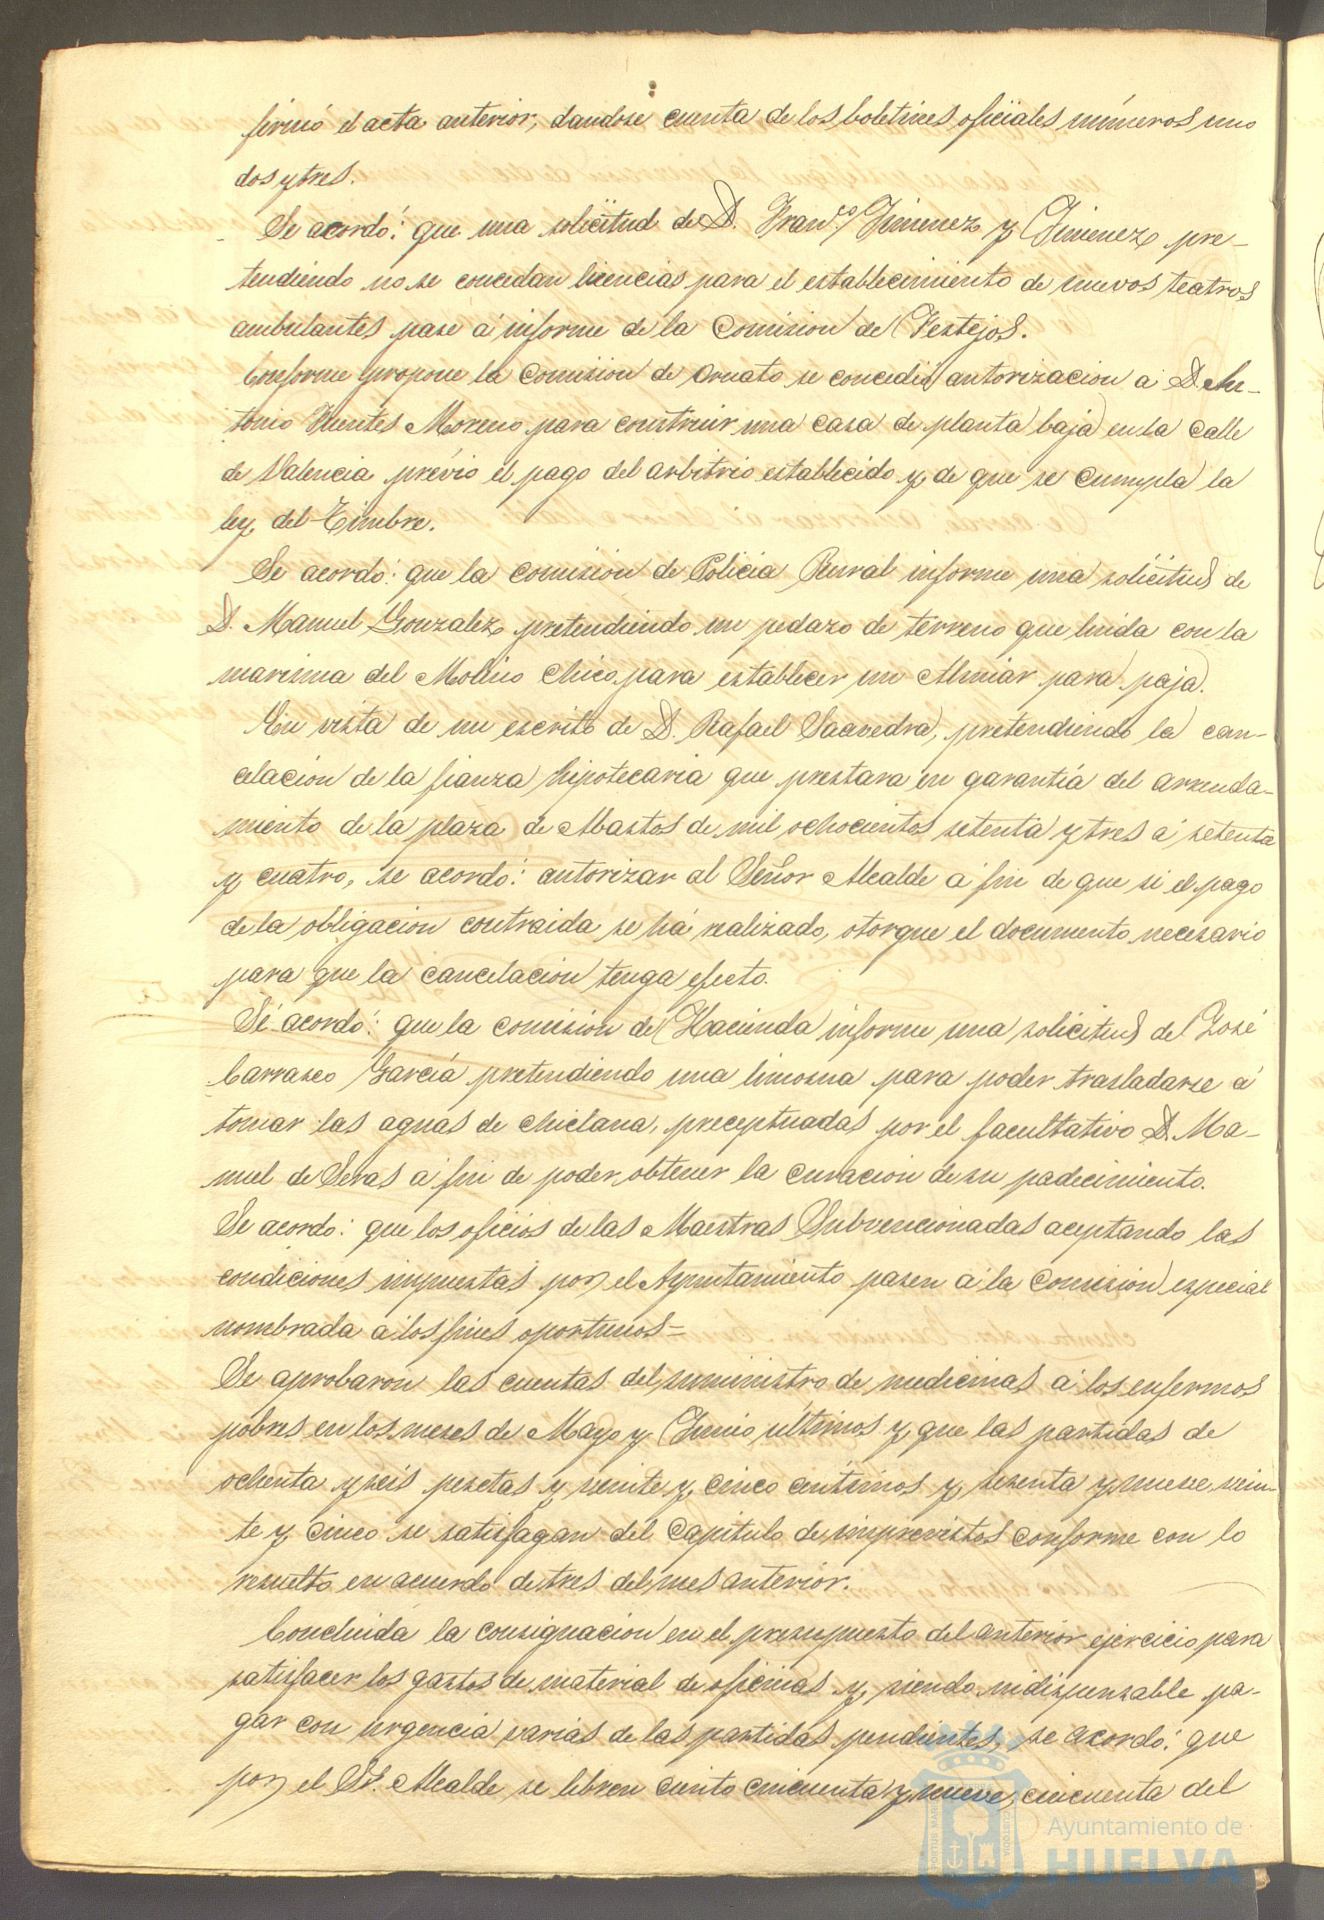 firmó el acta anterior, dandose cuenta de los boletines oficiales números uno
dos y tres.
Se acordó: que una solicitud de D. Fran.co Jimenez y Jimenez pre-
tendiendo no se concedan licencias para el establecimiento de nuevos teatros
ambulantes pase á informe de la Comision de Festejos.
Conforme propone la Comision de Ornato se concedió autorizacion á D. An-
tonio Fuentes Moreno para construir una casa de planta baja en la calle
de Valencia prévio el pago del arbitrio establecido y de que se cumpla la
ley del Timbre.
Se acordó: que la comision de Policia Rural informe una solicitud de
D. Manuel Gonzalez pretendiendo un pedazo de terreno que linda con la
marisma del Molino Chico para establecer un Almiar para paja.
En vista de un escrito de D. Rafael Saavedra, pretendiendo la can-
celación de la fianza hipotecaria que prestara en garantiá del arrenda-
miento de la plaza de Abastos de mil ochocientos setenta y tres á setenta
y cuatro, se acordó: autorizar al Señor Alcalde á fin de que si el pago
de la obligacion contraida se há realizado, otorgue el documento necesario
para que la cancelacion tenga efecto.
Se acordó: que la comision de Hacienda informe una solicitud de José
Carrasco Garciá pretendiendo una limosna para poder trasladarse á
tomar las aguas de Chiclana, preceptuadas por el facultativo D. Ma-
nuel de Seras á fin de poder obtener la curacion de su padecimiento.
Se acordó: que los oficios de las Maestras Subvencionadas aceptando las
condiciones impuestas por el Ayuntamiento pasen á la Comision especial
nombrada á los fines oportunos=
Se aprobaron las cuentas del suministro de medicinas á los enfermos
pobres en los meses de Mayo y Junio últimos y que las partidas de
ochenta y seis pesetas y veinte y cinco centimos y sesenta y nueve, vein-
te y cinco se satisfagan del Capitulo de imprevistos conforme con lo
resuelto en acuerdo de tres del mes anterior.
Concluida la consignacion en el presupuesto del anterior ejercicio para
satisfacer los gastos de material de oficinas y siendo indispensable pa-
gar con urgencia varias de las partidas pendientes, se acordó: que
por el Sr. Alcalde se libren ciento cincuenta y nueve, cincuenta del
Ayuntamiento de
HUELVA